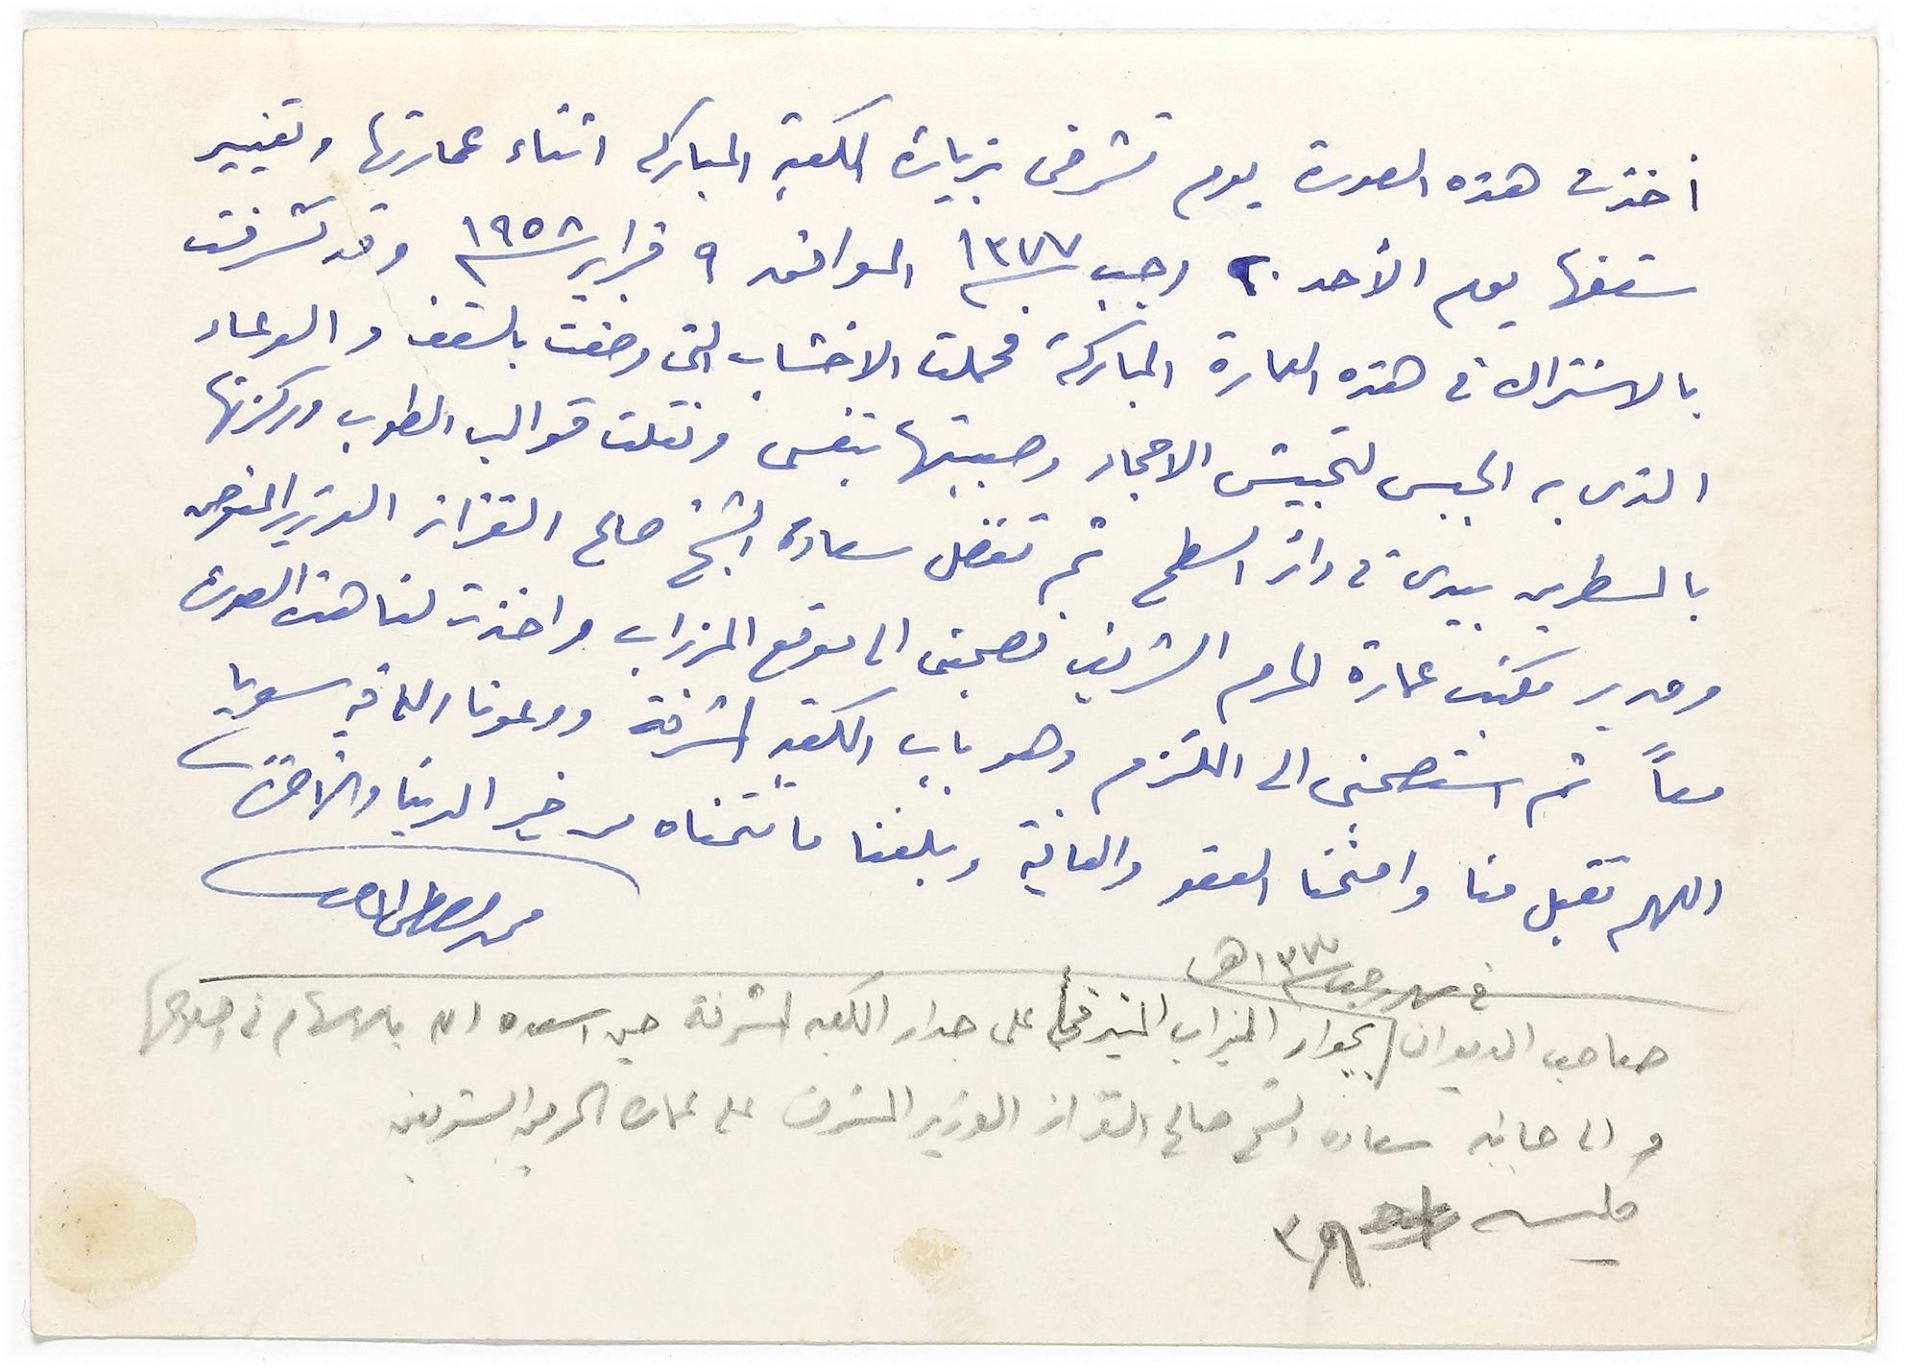 أخذت هذه الصورة يوم تشرفى بزيارة الكعبة المباركه اثناء عمارتها وتغيير
سقفها يوم الأحد ٢٠ رجب ١٣٧٧ الموافق ٩ فبراير ١٩٥٨ وقد تشرفت
بالاشتراك فى هذه العمارة المباركة فحملت الاخشاب التى وضعت بالسقف والوعاء
الذى به الجبس لتجبيش الاحجار وصببتها بنفسى ونقلت قوالب الطوب وركزتها
بالمسطرين بيدى فى دائر السطح ثم تفضل سعادة الشيخ صالح القزاز الوزير المفوض
ومدير مكتب عمارة الحرم الشريف فصحبنى الى موقع المزراب واخذت لنا هذه الصورة
معاً ثم استصحبنى الى الملتزم وهو باب الكعبة المشرفة ودعونا الله فيه سويا
اللهم تقبل منا وامنحنا العفو والعافية وبلغنا ما نتمناه من خير الدنيا والآخرة
محمد مصطفى
فى رجب ١٣٧٧هـ
صاحب الديوان بجوار الميزاب على جدار الكعبه المشرفة حين اسعده الله بالاسهام فى
والى جانبه سعادة الشيخ صالح القزاز الوزير المشرف على عمارة الحرمين الشريفين